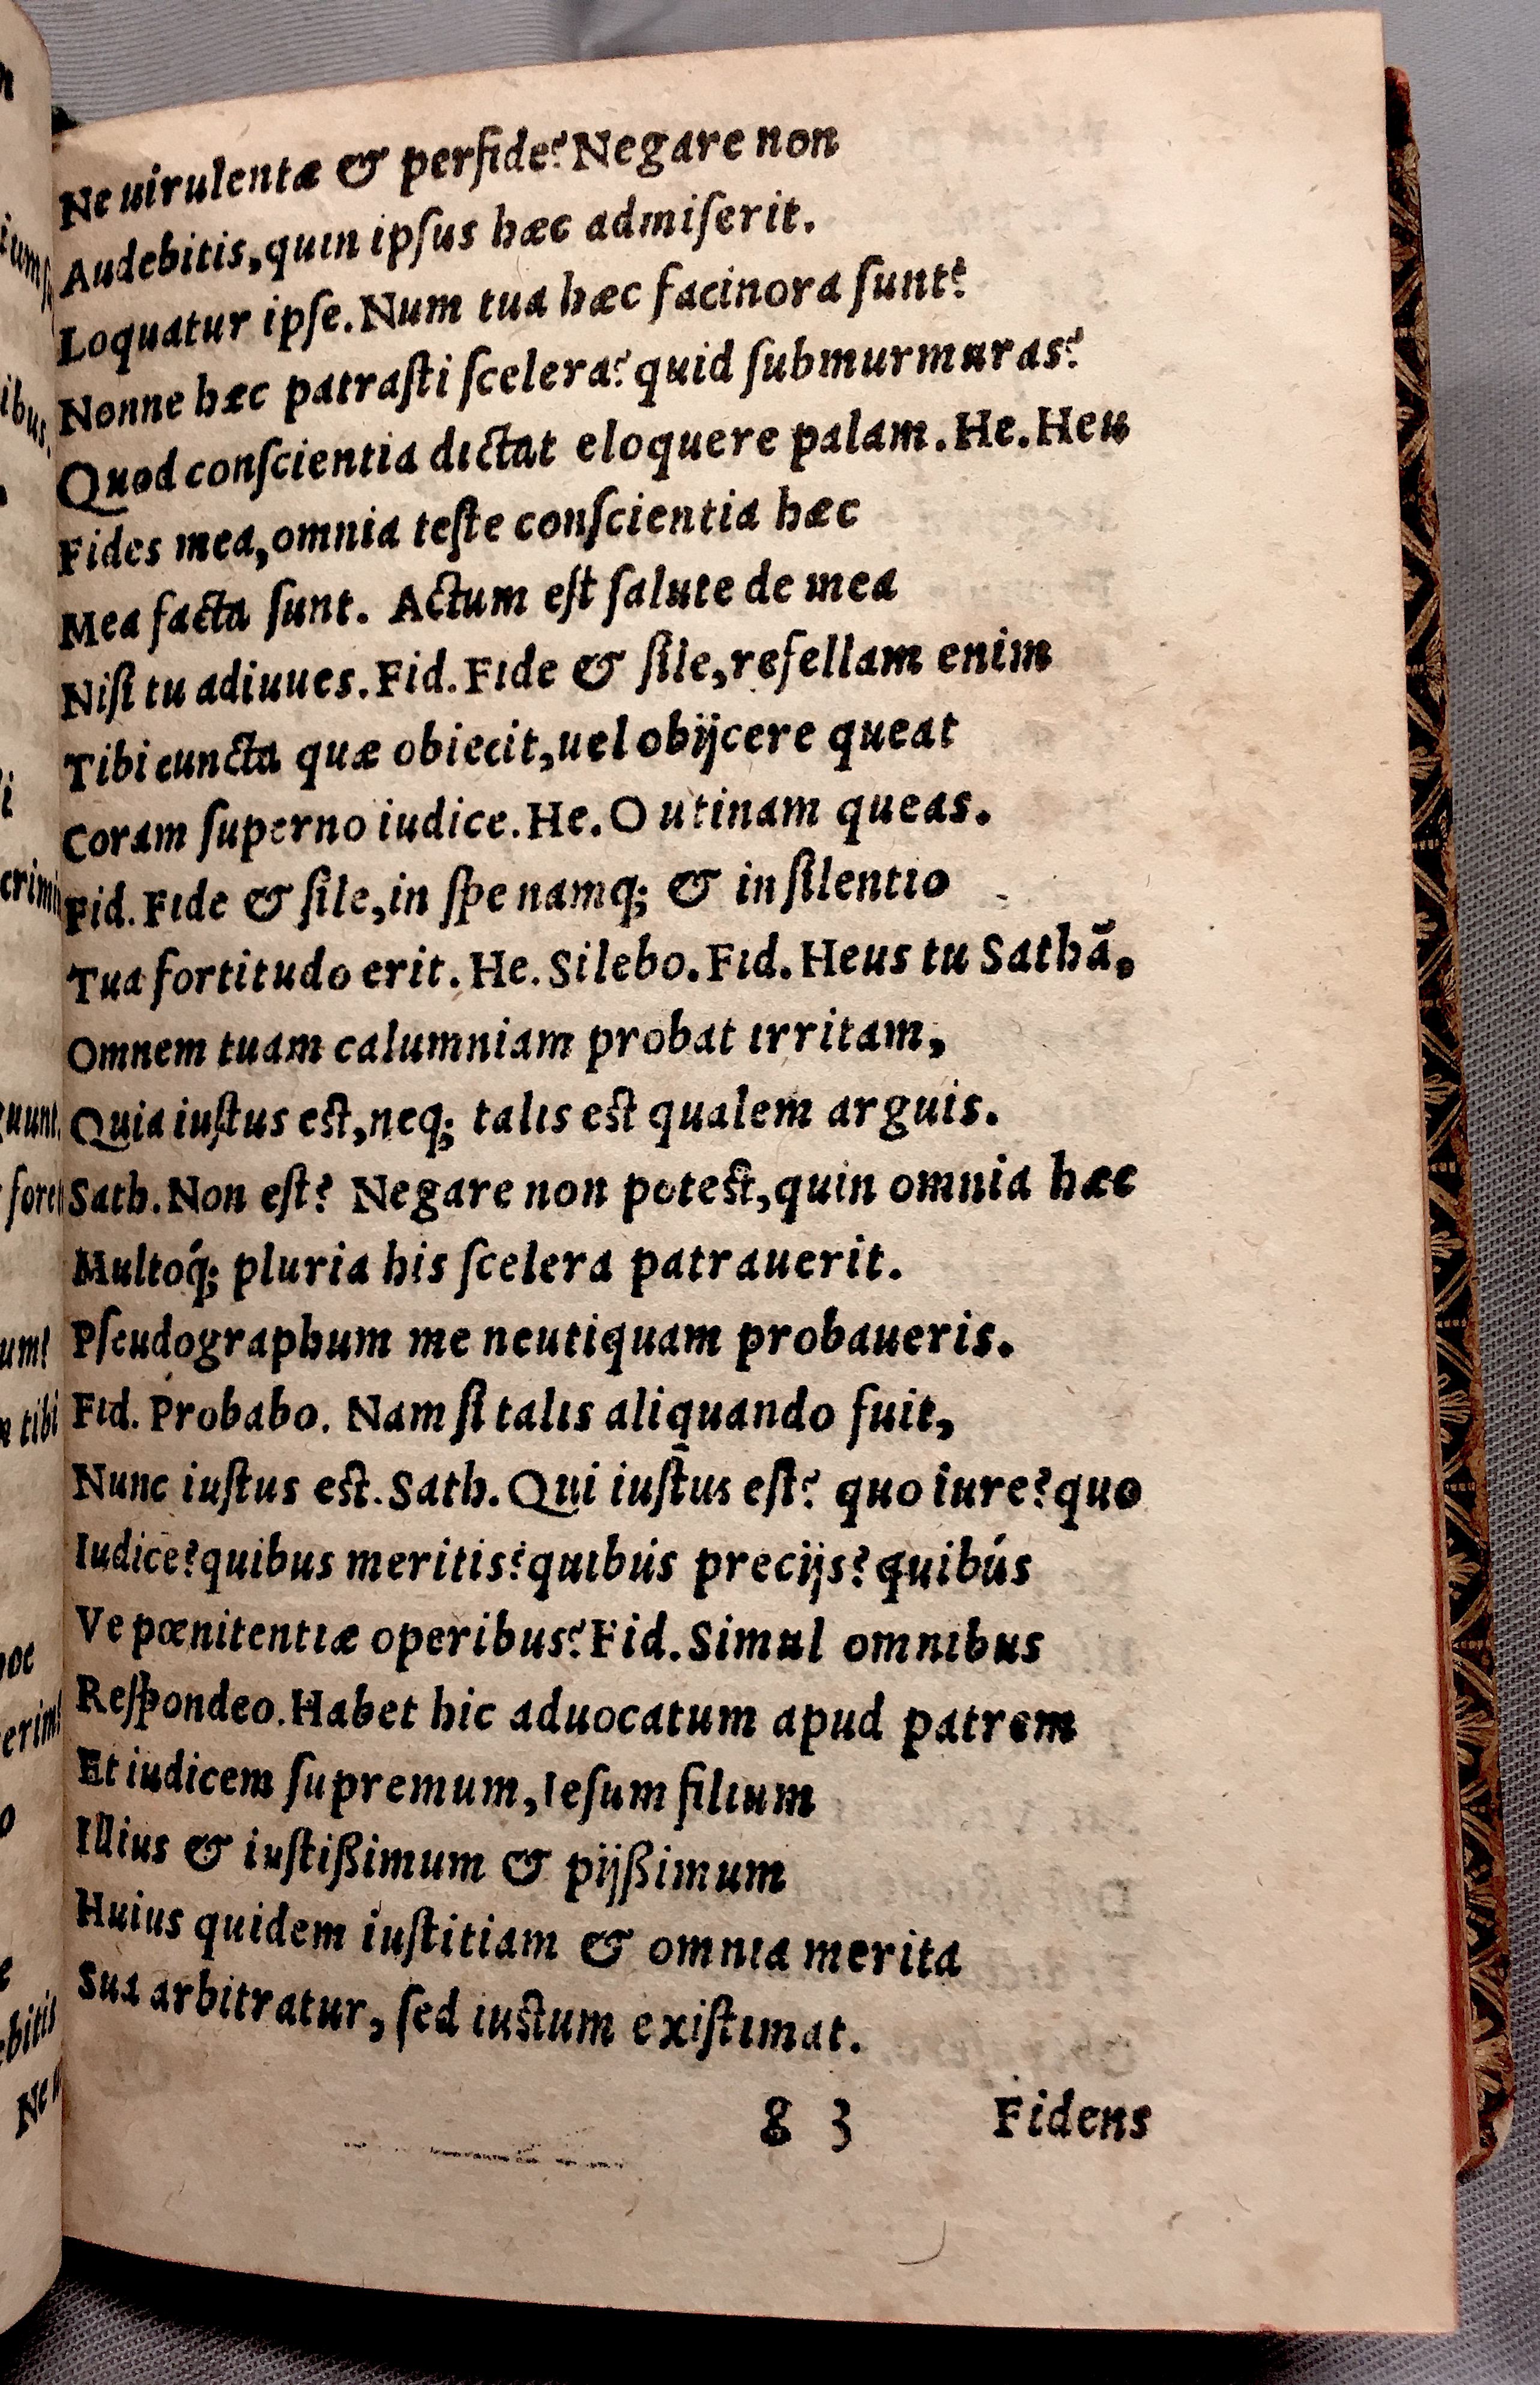 Ne uirulentæ & perfide? Negare non
Audebitis, quin ipſus hæc admiſerit.
Loquatur ipſe. Num tua hæc facinora ſunt?
Nonne hæc patraſti ſcelera? quid ſubmurmuras?
Quod conſcientia dictat eloquere palam. He. Heu
Fides mea, omnia teſte conſcientia hæc
Mea facta ſunt. Actum eſt ſalute de mea
Niſi tu adiuues. Fid. Fide & ſile, refellam enim
Tibi cuncta quæ obiecit, uel obijcere queat
Coram ſuperno iudice. He. O utinam queas.
Fid. Fide & ſile, in ſpe namq; & in ſilentio
Tua fortitudo erit. He. Silebo. Fid. Heus tu Sathā,
Omnem tuam calumniam probat irritam,
Quia iuſtus eſt, neq; talis eſt qualem arguis.
Sath. Non eſt? Negare non poteſt, quin omnia hæc
Multoq́; pluria his ſcelera patrauerit.
Pſeudographum me neutiquam probaueris.
Fid. Probabo. Nam ſi talis aliquando fuit,
Nunc iuſtus eſt. Sath. Qui iuſtus eſt? quo iure? quo
Iudice? quibus meritis? quibús precijs? quibús
Ve pœnitentiæ operibus? Fid. Simul omnibus
Reſpondeo. Habet hic aduocatum apud patrem
Et iudicem ſupremum, Ieſum filium
Illius & iuſtißimum & pijßimum
Huius quidem iuſtitiam & omnia merita
Sua arbitratur, ſed iuſtum exiſtimat.
g 3 Fidens